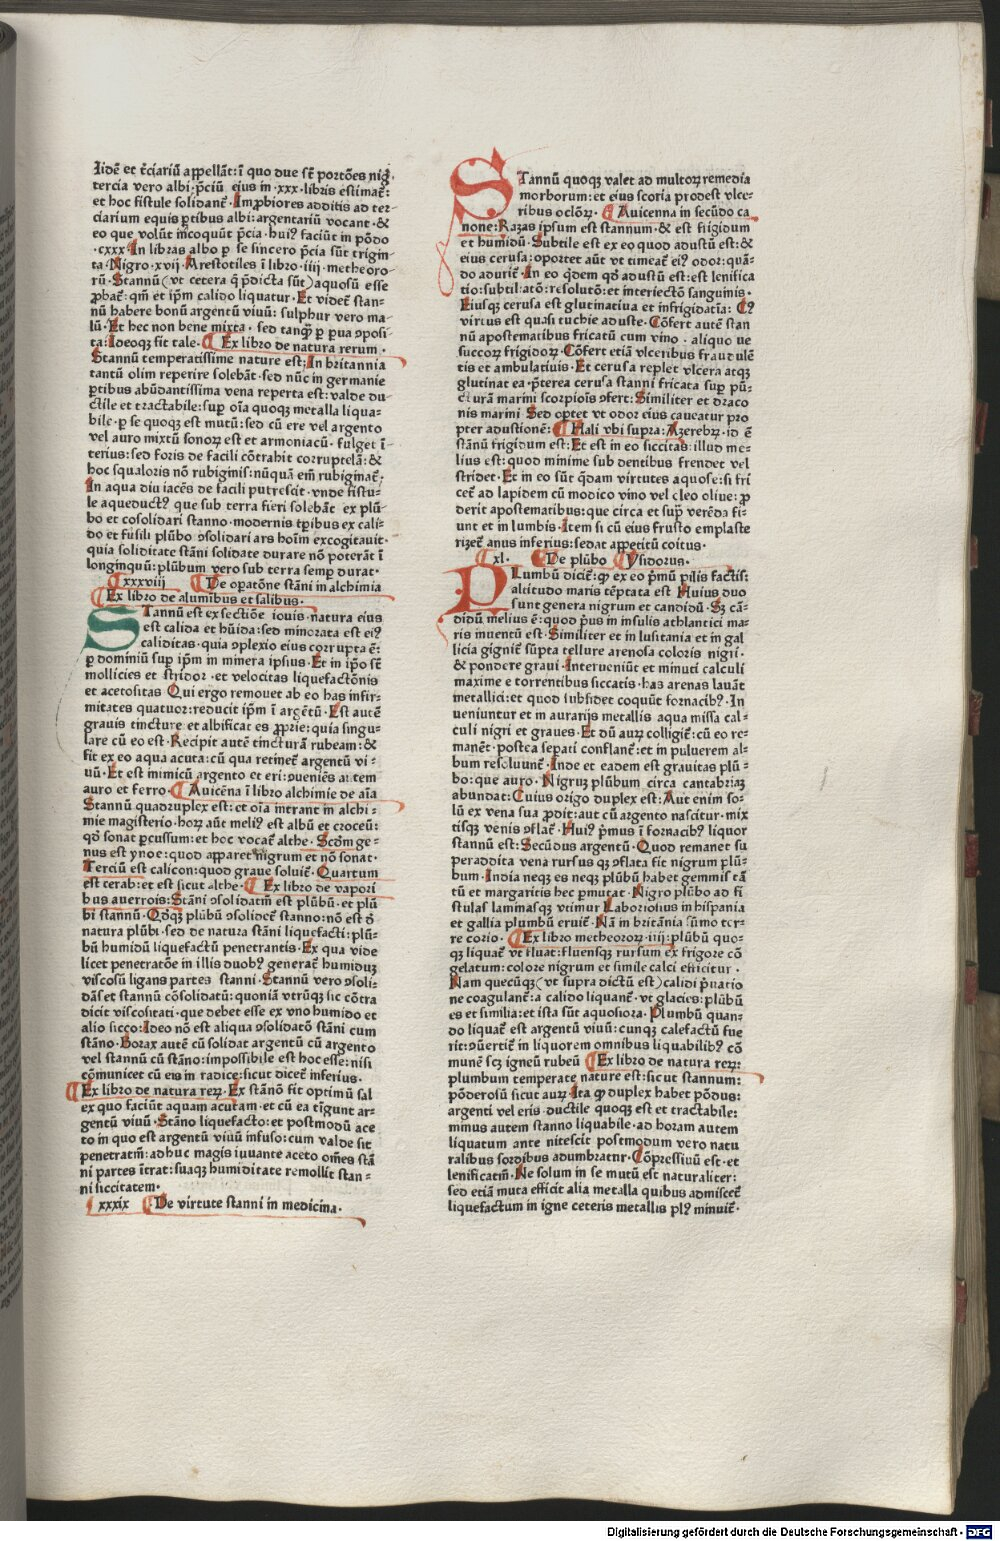 Iidē et tͬciariū appellāt: ī quo due st̄ portōes nig̃.
tercia vero albi. p̄ciū eius in .xxx. libris estimat̄:
et hoc fistule solidant̄. Improbiores additis ad ter-
ciarium equis ꝑtibus albi: argentariū vocant. &
eo que volūt incoquūt p̄cia. huiꝰ faciūt in pōdo
.cxxx. In libras albo ꝑ se sincero p̄cia sūt trigin-
ta. Nigro .xvij. Arestotiles ī libro .iiij. metheoro-
rū. Stannū (vt cetera q̄ p̄dicta sūt) aquosū esse
ꝓbat̄: qm̄ et ip̄m calido liquatur. Et videt̄ stan-
nū habere bonū argentū viuū: sulphur vero ma-
lū. Et hec non bene mixta. sed tanq̄ ꝑ ꝑua ꝯposi-
ta: Ideoqꝫ fit tale. ¶ Ex libro de natura rerum.
Stannū temperatissime nature est: In britannia
tantū olim reperire solebāt. sed nūc in germanie
ꝑtibus abūdantissima vena reperta est: valde du-
ctile et tractabile: suꝑ oīa quoqꝫ metalla liqua-
bile. ꝑ se quoqꝫ est mutū: sed cū ere vel argento
vel auro mixtū sonoꝝ est et armoniacū. fulget ī
terius: sed foris de facili cōtrahit corruptelā: &
hoc squaloris nō rubiginis: nūquā em̄ rubiginat̄.
In aqua diu iacēs de facili putrescit. vnde fistu-
le aqueductꝰ que sub terra fieri solebāt ex plū-
bo et cosolidari stanno. modernis tꝑibus ex cali-
do et fusili plūbo ꝯsolidari ars hoīm excogitauit.
quia soliditate stāni solidate durare nō poterāt ī
longinquū: plūbum vero sub terra semꝑ durat.
¶ xxxviij ¶ De oꝑatōne stāni in alchimia
¶ Ex libro de alumibus et salibus.
STannū est ex sectiōe iouis. natura eius
est calida et hūida: sed minorata est eiꝰ
caliditas. quia ꝯplexio eius corrupta ē:
ꝑ dominiū suꝑ ip̄m in minera ipsius. Et in ip̄o st̄
mollicies et stridor. et velocitas liquefactōnis
et acetositas Qui ergo remouet ab eo has infir-
mitates quatuor: reducit ip̄m ī argētū. Est autē
grauis tincture et albificat es ꝓprie: quia singu-
lare cū eo est. Recipit autē tincturā rubeam: &
fit ex eo aqua acuta: cū qua retinet̄ argentū vi-
uū. Et est inimicū argento et eri: ꝯueniēs autem
auro et ferro. ¶ Auicēna ī libro alchimie de aīa
Stannū quadruplex est: et oīa intrant in alchi-
mie magisterio. hoꝝ aūt meliꝰ est albū et croceū:
qd̄ sonat ꝑcussum: et hoc vocat̄ althe. Scōm ge-
nus est ynoe: quod apparet nigrum et nō sonat.
Terciū est calicon: quod graue soluit̄. Quartum
est cerab: et est sicut althe. ¶ Ex libro de vapori
bus auerrois: Stāni ꝯsolidatiū est plūbū. et plū
bi stannū. Qd̄qꝫ plūbū ꝯsolidet̄ stanno: nō est d̄
natura plūbi. sed de natura stāni liquefacti: plū-
bū humidū liquefactū penetrantis. Ex qua vide
licet penetratōe in illis duobꝰ generat̄ humiduꝫ
viscosū ligans partes stanni. Stannū vero ꝯsoli-
dās et stannū cōsolidatū: quoniā vtrūqꝫ sic cōtra
dicit viscositati. que debet esse ex vno humido et
alio sicco: Ideo nō est aliqua ꝯsolidatō stāni cum
stāno. Borax autē cū solidat argentū cū argento
vel stannū cū stāno: impossibile est hoc esse: nisi
cōmunicet cū eis in radice: sicut dicet̄ inferius.
¶ Ex libro de natura reꝝ. Ex stānō fit optimū sal
ex quo faciūt aquam acutam. et cū ea tīgunt ar-
gentū viuū. Stāno liquefacto: et postmodū ace
to in quo est argentū viuū infuso: cum valde sit
penetratiū: adhuc magis iuuante aceto oīnes stā
ni partes ītrat: suaqꝫ humiditate remollit stan-
ni siccitatem.
¶ xxxix ¶ De virtute stanni in medicina.
STannū quoqꝫ valet ad multoꝝ remedia
morborum: et eius scoria prodest vlce-
ribus oclōꝝ. ¶ Auicenna in secūdo ca
none: Razas ipsum est stannum. & est frigidum
et humidū. Subtile est ex eo quod adustū est: &
eius cerusa: oportet aūt vt timeat̄ eiꝰ odor: quā-
do adurit̄. In eo q̄dem qd̄ adustū est: est lenifica
tio: subtiliatō: resolutō: et interiectō sanguinis.
Eiusqꝫ cerusa est glutinatiua et infrigidatīa: Eiꝰ
virtus est quasi tuchie aduste. Cōfert autē stan
nū apostematibus fricatū cum vino. aliquo ue
succoꝝ frigidoꝝ. Cōfert etiā vlceribus fraudulē
tis et ambulatiuis. Et cerusa replet vlcera atqꝫ
glutinat ea. p̄terea cerusa stanni fricata suꝑ pū-
cturā marini scorpiōis ꝯfert: Similiter et draco
nis marini Sed oꝑtet vt odor eius caueatur pro
pter adustionē: ¶ Hali vbi supra: Azerebꝝ. id ē
stānū frigidum est: Et est in eo siccitas: illud me-
lius est: quod minime sub dentibus frendet vel
stridet. Et in eo sūt q̄dam virtutes aquose: si fri
cet̄ ad lapidem cū modico vino vel oleo oliue: ꝓ
derit apostematibus: que circa et suꝑ verēda fi-
unt et in lumbis. Item si cū eius frusto emplaste
rizet̄ anus inferius: sedat appetitū coitus.
¶ xl. ¶ De plūbo ¶ Ysidorus.
PLumbū dicit̄: ꝙ ex eo p̄mū pilis factis:
altitudo maris tēptata est Huius duo
sunt genera nigrum et candidū. Sꝫ cā-
didū melius ē: quod p̄us in insulis athlantici ma-
ris inuentū est. Similiter et in lusitania et in gal
licia gignit̄ sūpta tellure arenosa coloris nigri.
& pondere graui. Interueniūt et minuti calculi
maxime e torrentibus siccatis. has arenas lauāt
metallici: et quod subsidet coquūt fornacibꝰ. In
ueniuntur et in aurarijs metallis aqua missa cal-
culi nigri et graues. Et dū auꝝ colligit̄: cū eo re-
manēt. postea seꝑati conflant̄: et in puluerem al-
bum resoluunt̄. Inde et eadem est grauitas plū-
bo: que auro. Nigruꝫ plūbum circa cantabriaꝫ
abundat: Cuius origo duplex est: Aut enim so-
lū ex vena sua ꝓdit: aut cū argento nascitur. mix
tisqꝫ venis ꝯflat̄. Huiꝰ p̄mus ī fornacibꝰ liquor
stannū est: Secūdus argentū. Quod remanet su
peraddita vena rursus qꝫ ꝯflata fit nigrum plū-
bum. India neqꝫ es neqꝫ plūbū habet gemmis tā
tū et margaritis hec ꝑmutat. Nigro plūbo ad fi
stulas laminasqꝫ vtimur Laboriosius in hispania
et gallia plumbū eruit̄. Nā in britānia sūmo ter-
re corio. ¶ Ex libro metheoroꝝ .iiij: plūbū quo-
qꝫ liquat̄ vt fluat: fluensqꝫ rursum ex frigore cō
gelatum: colore nigrum et simile calci efficitur.
Nam quecūqꝫ (vt supra dictū est) calidi p̄uatio
ne coagulant̄: a calido liquant̄. vt glacies: plūbū
es et similia: et ista sūt aquosiora. Plumbū quan-
do liquat̄ est argentū viuū: cunqꝫ calefactū fue
rit: ꝯūertit̄ in liquorem omnibus liquabilibꝰ cō
munē scꝫ igneū rubeū ¶ Ex libro de natura reꝝ:
plumbum temperate nature est: sicut stannum:
pōderosū sicut auꝝ. Ita ꝙ duplex habet pōdus:
argenti vel eris. ductile quoqꝫ est et tractabile:
minus autem stanno liquabile. ad horam autem
liquatum ante nitescit postmodum vero natu
ralibus sordibus adumbratur. Cōpressiuū est. et
lenificatiū. Ne solum in se mutū est naturaliter:
sed etiā muta efficit alia metalla quibus admiscet̄
liquefactum in igne ceteris metallis plꝰ minuit̄.
Digitalisierung gefördert durch die Deutsche Forschungsgemeinschaft - DFG